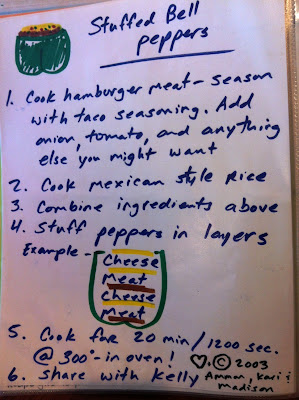 Stuffed Bell
peppers
1. Cook hamburger meat - season
with taco seasoning. Add
onion, tomato, and anything
else you might want
2. Cook mexican style rice
3. Combine ingredients above
4. Stuff peppers in layers
Example -
Cheese
Meat
Cheese
Meat
5. Cook for 20 min/1200 sec.
@ 300°- in oven! ♡. © 2003
6. Share with Kelly Amman, Kari &
Madison